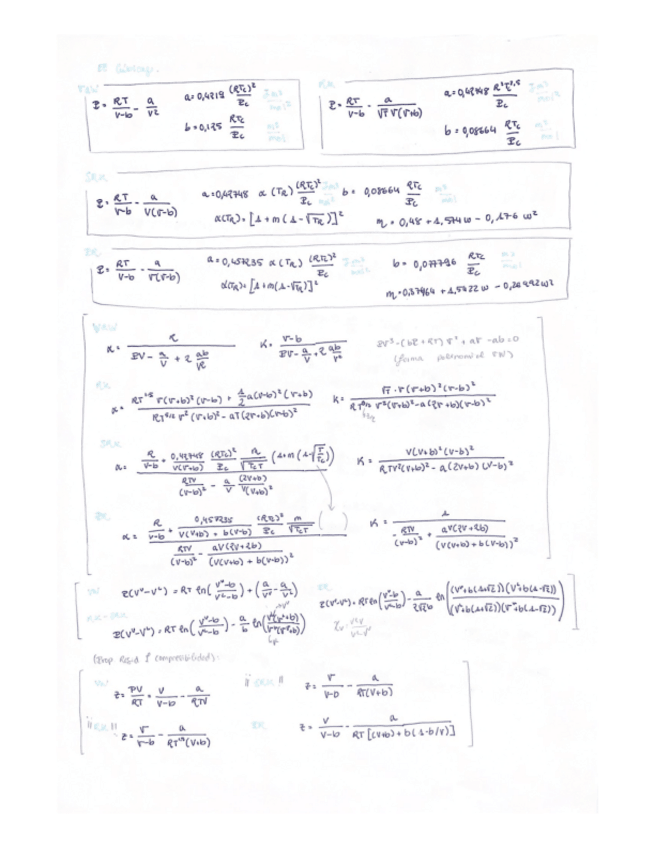 VdW
P = RT/(V-b) - a/V²   a = 0,4219 (RTc)²/Pc
b = 0,125 RTc/Pc   m³/mol
RK
P = RT/(V-b) - a/(√T V(V+b))   a = 0,42748 R²Tc^2,5/Pc
b = 0,08664 RTc/Pc   m³/mol
SRK
P = RT/(V-b) - a/(V(V-b))   a = 0,42748 α(TR) (RTc)²/Pc   b = 0,08664 RTc/Pc   m³/mol
α(TR) = [1 + m(1-√TR)]²   m = 0,48 + 1,574w - 0,176w²
PR
P = RT/(V-b) - a/(V(V-b))   a = 0,457235 α(TR) (RTc)²/Pc   b = 0,077796 RTc/Pc   m³/mol
α(TR) = [1 + m(1-√TR)]²   m = 0,37464 + 1,5422w - 0,26992w²
VdW
α = R/(PV - a/V + 2 ab/V²)   K = (V-b)/(PV - a/V + 2 ab/V²)   PV³ - (bP + RT)V² + aV - ab = 0
(forma polinomial VW)
RK
α = (RT^1,5 V(V+b)²(V-b) + 1/2 a(V-b)²(V+b))/(RT^5/2 V²(V+b)² - aT(2V+b)(V-b)²)   K = (√T · V(V+b)²(V-b)²)/(RT^3/2 V²(V+b)² - a(2V+b)(V-b)²)
SRK
α = (R/(V-b) + 0,42748/(V(V+b)) (RTc)²/Pc m/√(TcT) (1+m(1-√(T/Tc))))/(RTV/(V-b)² - a/V (2V+b)/(V+b)²)   K = (V(V+b)²(V-b)²)/(RTV²(V+b)² - a(2V+b)(V-b)²)
PR
α = (R/(V-b) + 0,457235/(V(V+b) + b(V-b)) (RTc)²/Pc m/√(TcT) ( ))/(RTV/(V-b)² - aV(2V+2b)/(V(V+b) + b(V-b))²)   K = 1/(-RTV/(V-b)² + aV(2V+2b)/(V(V+b)+b(V-b))²)
VW   P(Vᵛ-Vᴸ) = RT ln((Vᵛ-b)/(Vᴸ-b)) + (a/Vᵛ - a/Vᴸ)
PR   P(Vᵛ-Vᴸ) = RT ln((Vᵛ-b)/(Vᴸ-b)) - a/(2√2 b) ln(((Vᵛ+b(1+√2))(Vᴸ+b(1-√2)))/((Vᴸ+b(1+√2))(Vᵛ+b(1-√2))))
RK-SRK   P(Vᵛ-Vᴸ) = RT ln((Vᵛ-b)/(Vᴸ-b)) - a/b ln((Vᵛ(Vᴸ+b))/(Vᴸ(Vᵛ+b)))
VW
Z = PV/RT = V/(V-b) - a/(RTV)
¡¡ SRK !!   Z = V/(V-b) - a/(RT(V+b))
¡¡ RK !!   Z = V/(V-b) - a/(RT^1,5(V+b))
PR   Z = V/(V-b) - a/(RT[(V+b) + b(1-b/V)])